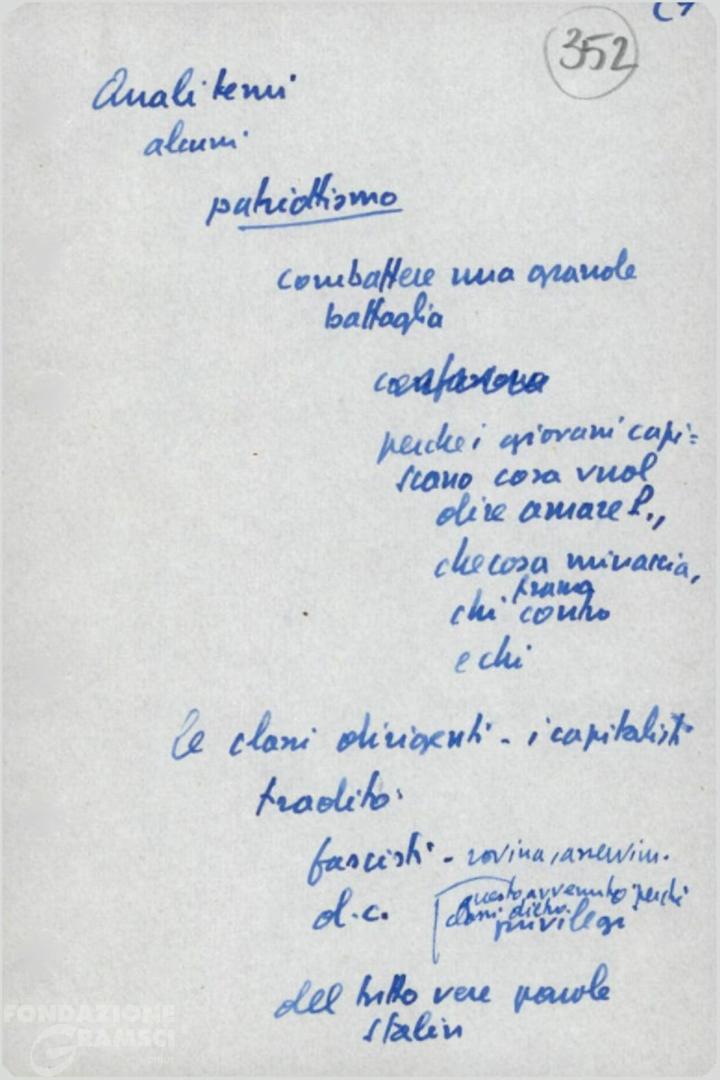 352
Quali temi
alcuni
patriottismo
combattere una grande
battaglia
perche i giovani capi=
scano cosa vuol
dire amare P.,
che cosa minaccia,
trama
chi contro
e chi
le classi dirigenti - i capitalisti
tradito
fascisti - rovina, asservim.
d.c.
questo avvenuto perché
classi dietro
privilegi
del tutto vere parole
Stalin
FONDAZIONE
GRAMSCI